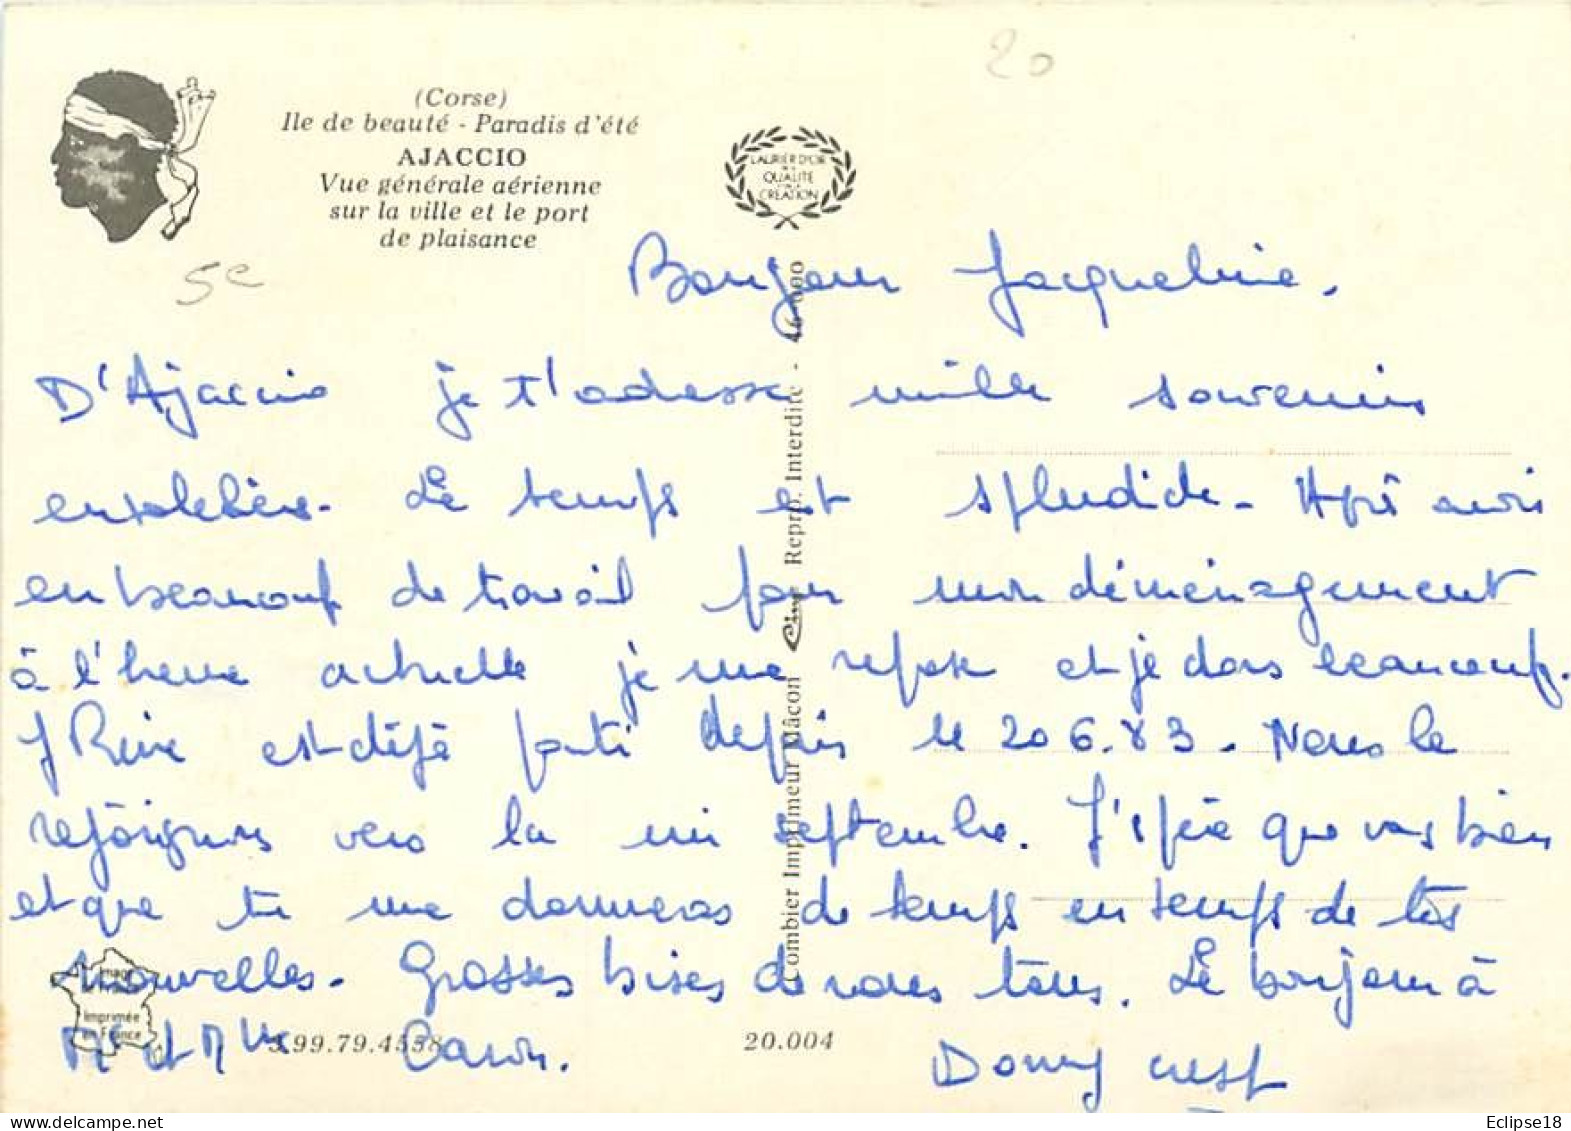 20
(Corse)
Ile de beauté - Paradis d'été
AJACCIO
Vue générale aérienne
sur la ville et le port
de plaisance
LAURIER D'OR
QUALITE
CREATION
5e
Bonjour Jacqueline.
D'Ajaccio je t'adresse mille souvenirs
ensoleillés. Le temps est splendide. Après avoir
eu beaucoup de travail pour mon déménagement
à l'heure actuelle je me repose et je dors beaucoup.
est déjà parti depuis le 20 6.83. Nous le
rejoignons vers la mi septembre. J'espère que vous bien
et que tu me donneras de temps en temps de tes
nouvelles. Grosses bises de nous tous. Le bonjour à
Mr et Mme Caron.
Combier Imprimeur Mâcon Cim Repro. Interdite - 46 000
Image
de France
Imprimée
en France
3.99.79.4558
20.004
Eclipse18